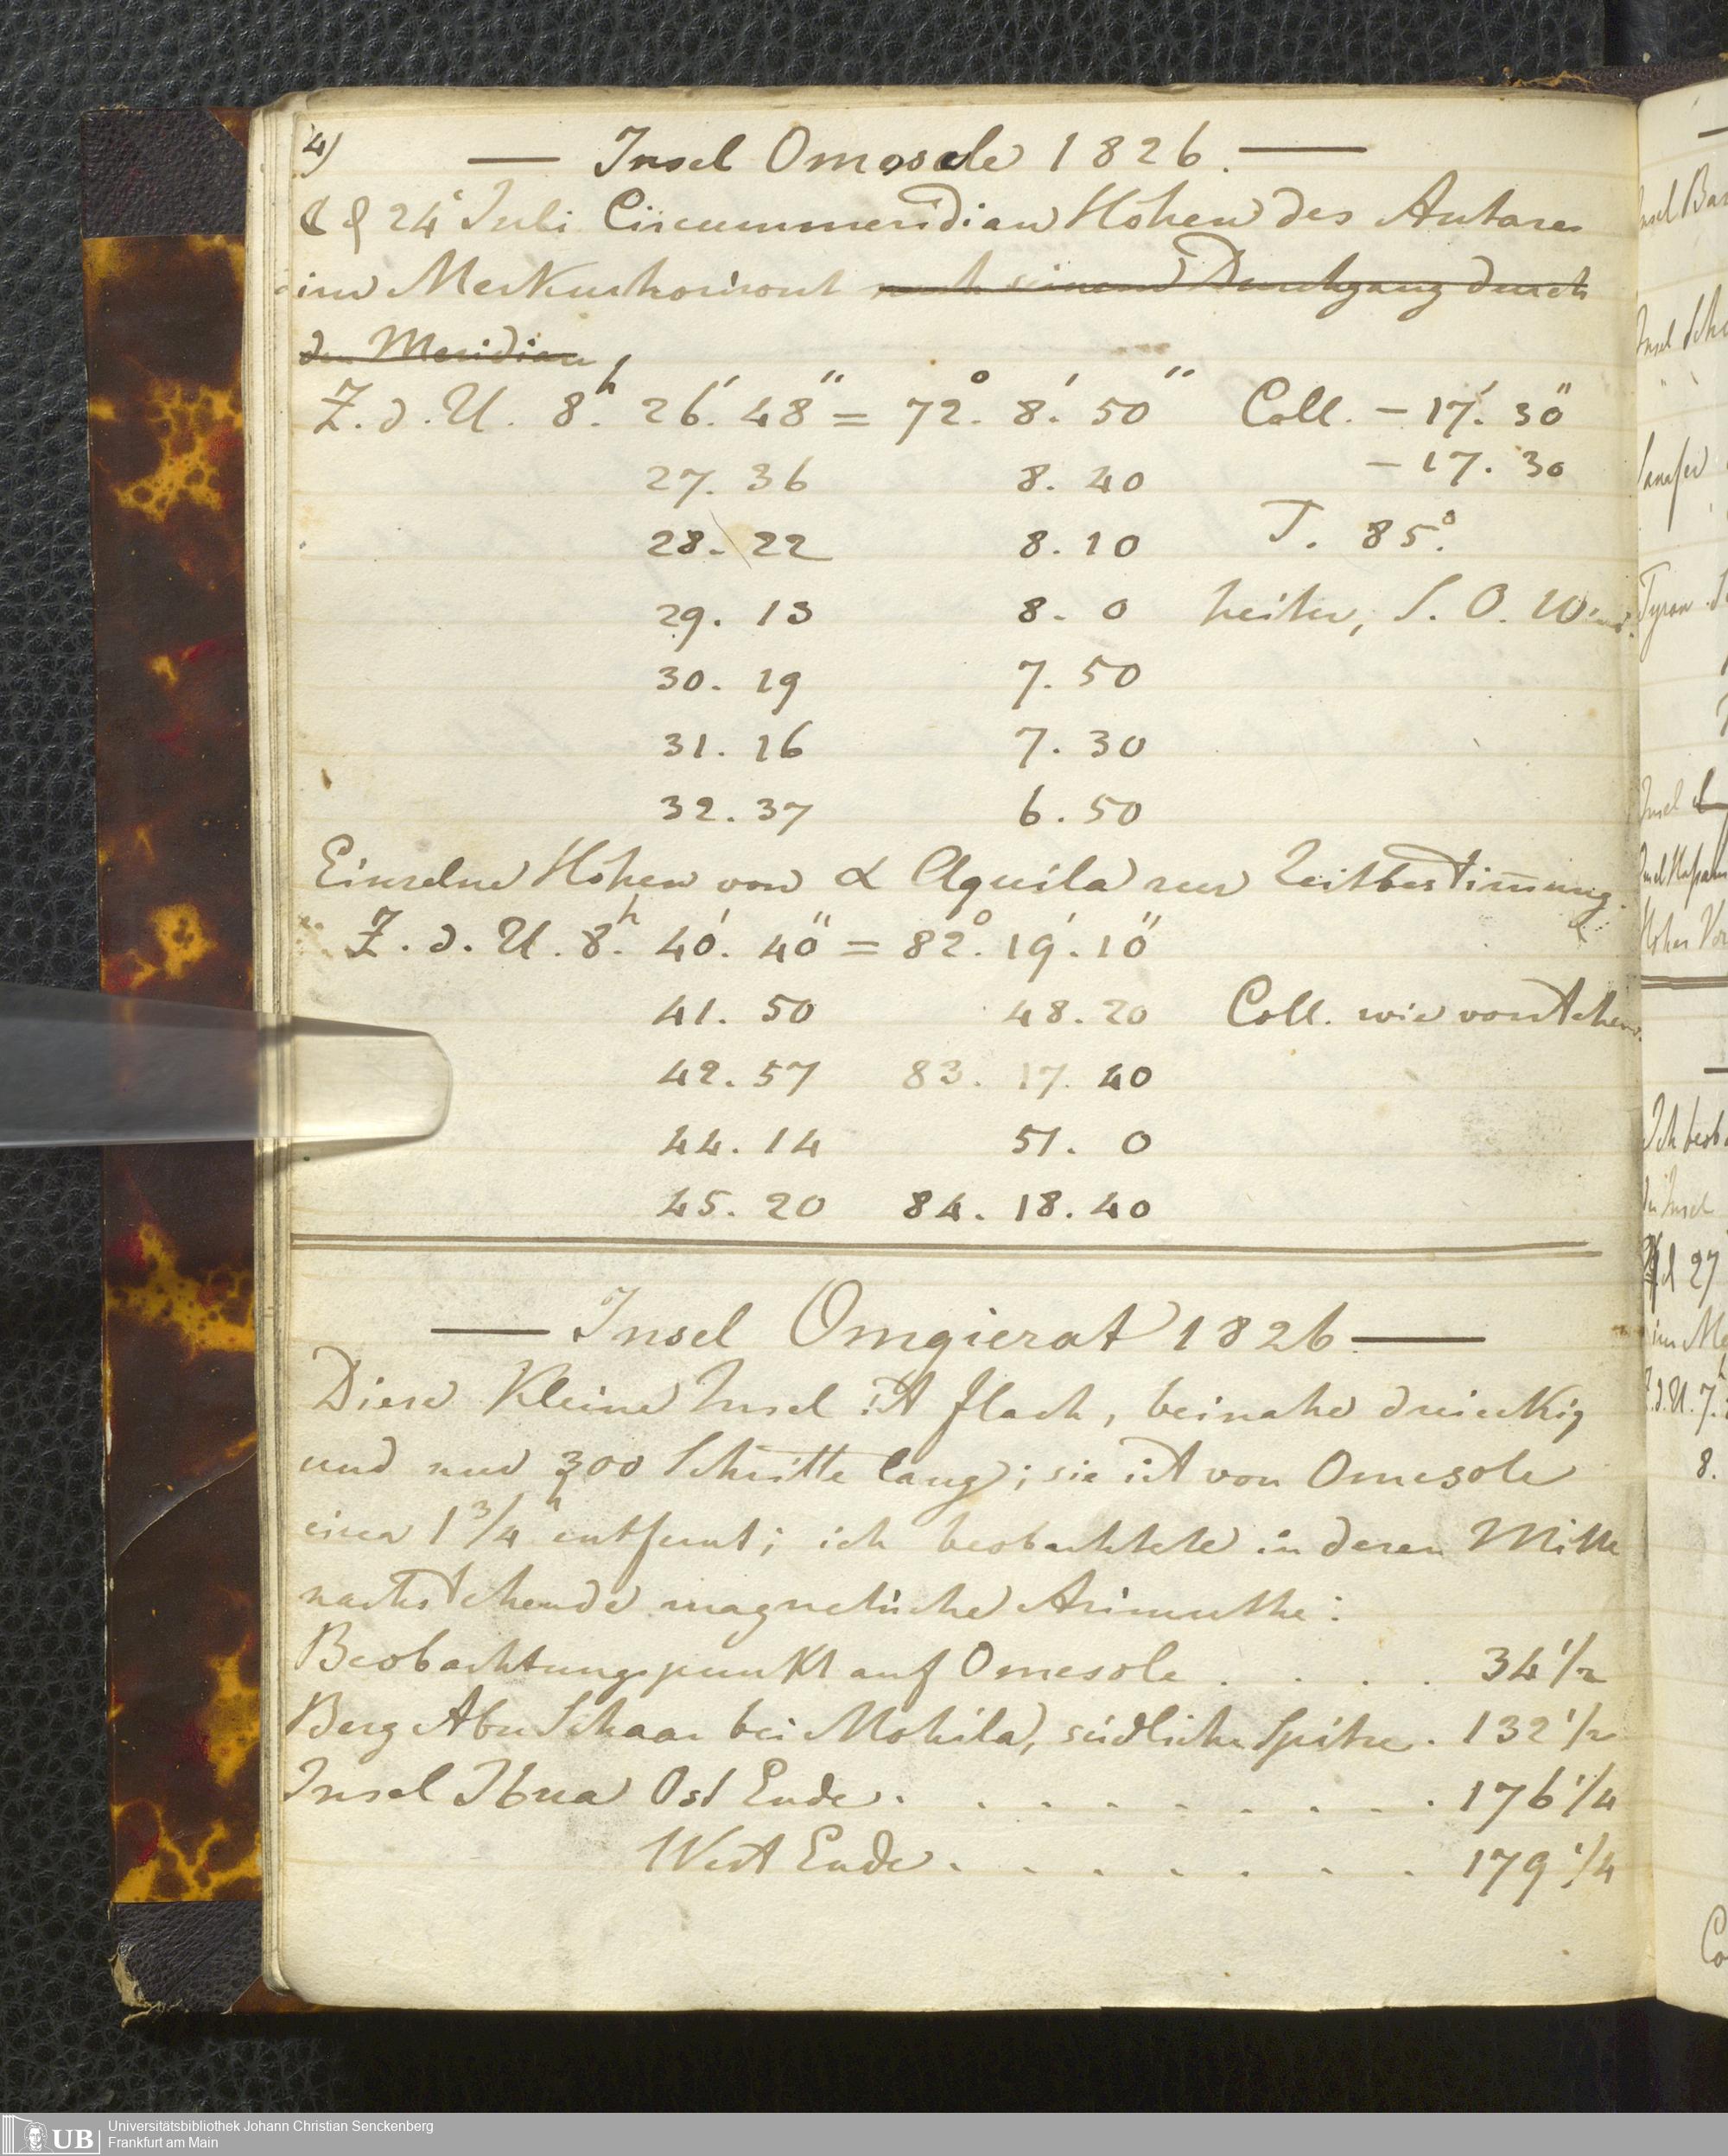 4)
— Insel Omosele 1826. —
24 Juli Circummeridian Höhen des Antares
im Merkurhorizont nach seinem Durchgang durch
den Meridian,
Z. d. U. 8.h 26.' 48" = 72.° 8.' 50" Coll. – 17.' 30"
27. 36 8. 40 – 17. 30
28. 22 8. 10 T. 85.°
29. 13 8. 0 heiter, S. O. Wind.
30. 19 7. 50
31. 16 7. 30
32. 37 6. 50
Einzelne Höhen von α Aquila zur Zeitbestim̄ung.
Z. d. U. 8.h 40.' 40" = 82.° 19.' 10"
41. 50 48. 20 Coll. wie vorstehend.
42. 57 83. 17. 40
44. 14 51. 0
45. 20 84. 18. 40
— Insel Omgierat 1826. —
Diese kleine Insel ist flach, beinahe dreieckig
und nur 300 Schritte lang; sie ist von Omesole
circa 1 3/4 entfernt; ich beobachtete in deren Mitte
nachstehende magnetische Azimuthe:
Beobachtungspunkt auf Omesole . . . . 34 1/2
Berg Abu Schaar bei Mohila, südliche Spitze . 132 1/2
Insel Jbua Ost Ende . . . . . . . . . 176 1/4
West Ende . . . . . . . . 179 1/4
Universitätsbibliothek Johann Christian Senckenberg
UB Frankfurt am Main